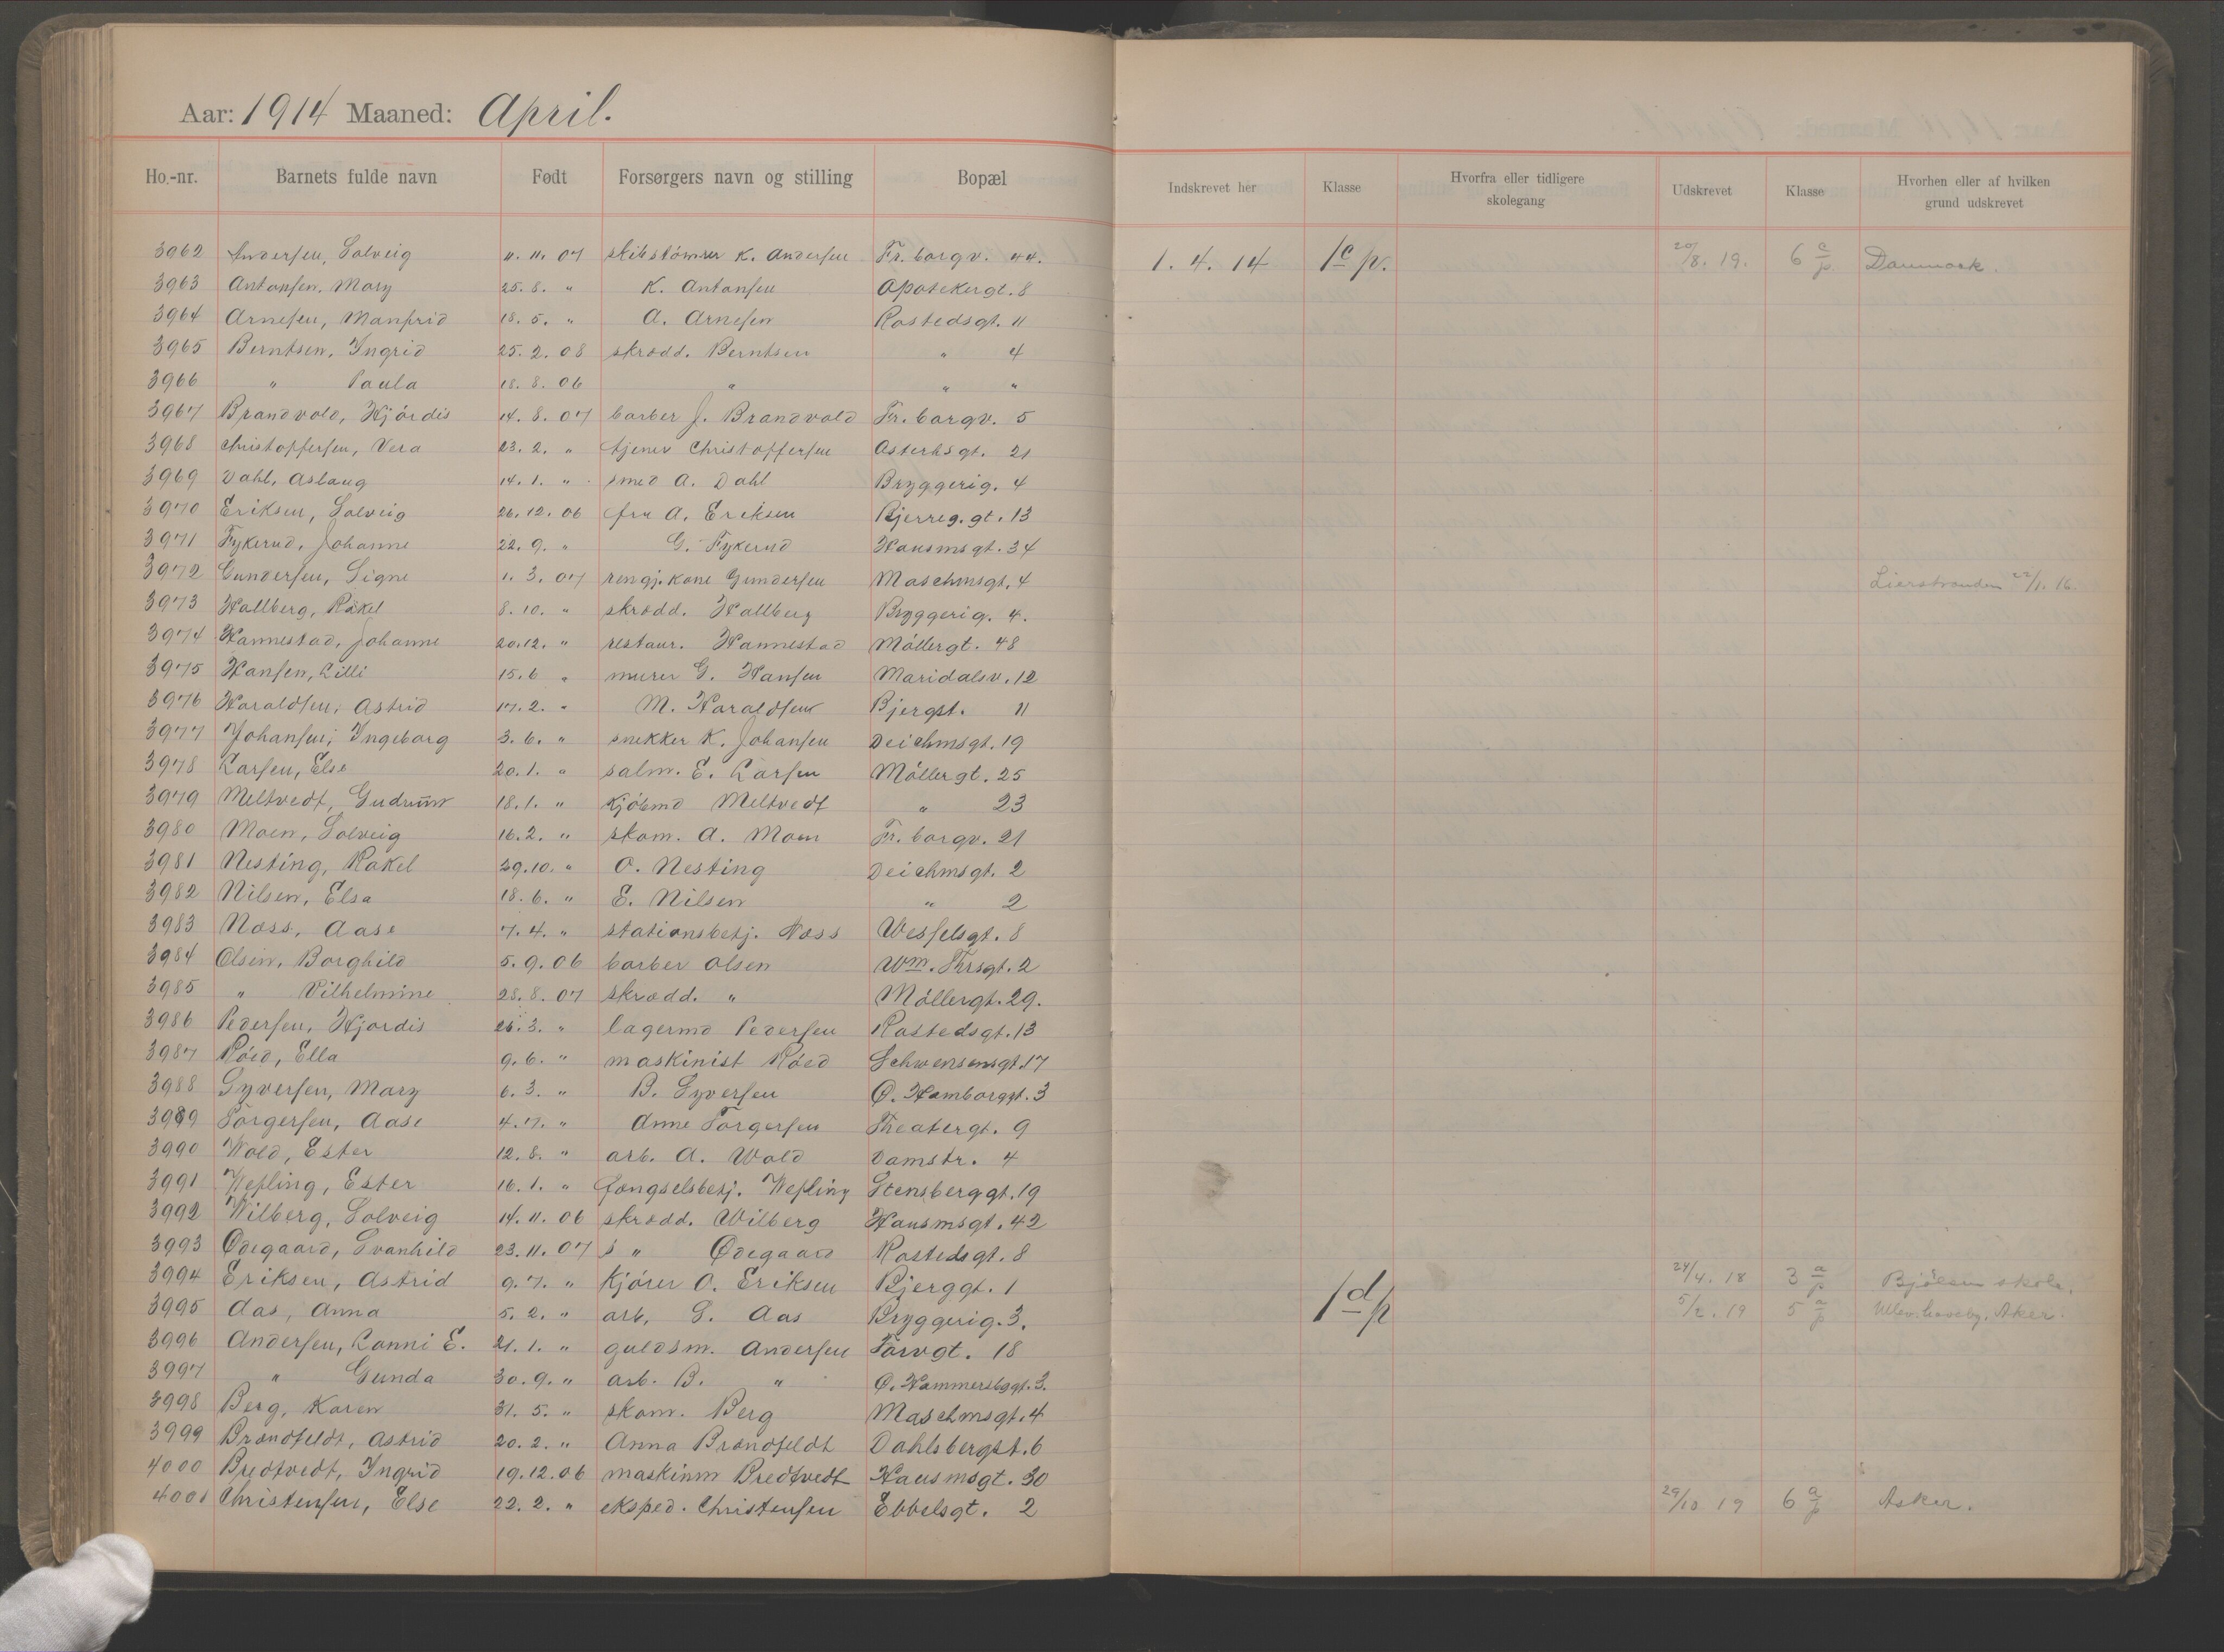 Aar: 1914 Maaned: April.
Ho.-nr. Barnets fulde navn Født Forsørgers navn og stilling Bopæl Indskrevet her Klasse Hvorfra eller tidligere skolegang Udskrevet Klasse Hvorhen eller af hvilken grund udskrevet
3962 Andersen, Solveig 11. 11. 07 skibstömrer K. Andersen Fr. borgv. 44. 1. 4. 14 1c p. 20/8. 19. 6 c/p. Danmark.
3963 Antonsen, Mary 25. 8. " K. Antonsen Apotekergt. 8
3964 Arnesen, Manfrid 18. 5. " A. Arnesen Rostedsgt. 11
3965 Berntsen, Ingrid 25. 2. 08 skrædd. Berntsen " 4
3966 " Paula 18. 8. 06 " " "
3967 Brandvold, Hjördis 14. 8. 07 barber J. Brandvold Fr. borgv. 5
3968 Christoffersen, Vera 23. 2. " tjener Christoffersen Osterhsgt. 21
3969 Dahl, Aslaug 14. 1. " smed A. Dahl Bryggerig. 4
3970 Eriksen, Solveig 26. 12. 06 fru A. Eriksen Bjerreg. gt. 13
3971 Fykerud, Johanne 22. 9. " G. Fykerud Hausmsgt. 34
3972 Gundersen, Signe 1. 3. 07 rengj. kone Gundersen Maschmsgt. 4 Lierstranden 22/1. 16.
3973 Hallberg, Rakel 8. 10. " skrædd. Hallberg Bryggerig. 4.
3974 Hannestad, Johanne 20. 12. " restaur. Hannestad Möllergt. 48
3975 Hansen, Lilli 15. 6 " murer G. Hansen Maridalsv. 12
3976 Haraldsen, Astrid 17. 2. " M. Haraldsen Bjergst. 11
3977 Johansen, Ingeborg 3. 6. " snekker K. Johansen Deichmsgt. 19
3978 Larsen, Else 20. 1. " salm. E. Larsen Möllergt. 25
3979 Meltvedt, Gudrun 18. 1. " Kjöbmd Meltvedt " 23
3980 Moen, Solveig 16. 2. " skom. A. Moen Fr. borgv. 21
3981 Nesting, Rakel 29. 10. " O. Nesting Deichmsgt. 2
3982 Nilsen, Elsa 18. 6. " E. Nilsen " 2
3983 Næss, Aase 7. 4. " stationsbetj. Næss Wesselsgt. 8
3984 Olsen, Borghild 5. 9. 06 barber Olsen Wm. Thrsgt. 2
3985 " Vilhelmine 28. 8. 07 skrædd. " Möllergt. 29.
3986 Pedersen, Hjordis 26. 3. " lagermd Pedersen Rostedsgt. 13
3987 Röed, Ella 9. 6. " maskinist Röed Schwensensgt. 17
3988 Syversen, Mary 6. 3. " B. Syversen Ø. Hamborggt. 3
3989 Torgersen, Aase 4. 7. " Anne Torgersen Theatergt. 9
3990 Wold, Ester 12. 8. " arb. A. Wold Damstr. 4
3991 Wefling, Ester 16. 1. " fængselsbetj. Wefling Stensberggt. 19
3992 Wilberg, Solveig 14. 11. 06 skrædd. Wilberg Hausmsgt. 42
3993 Ødegaard, Svanhild 23. 11. 07 s " Ødegaard Rostedsgt. 8
3994 Eriksen, Astrid 9. 7. " Kjörer O. Eriksen Bjerggt. 1 24/4. 18 3 a/p Bjölsen skole.
3995 Aas, Anna 5. 2. " arb. S. Aas Bryggerig. 3. 1d p 5/2. 19 5 a/p Ullev. haveby, Aker.
3996 Andersen, Lanni E. 21. 1. " guldsm. Andersen Torvgt. 18
3997 " Gunda 30. 9. " arb. B. " Ø. Hammersbggt. 3.
3998 Berg, Karen 31. 5. " skom. Berg Maschmsgt. 4
3999 Brandfeldt, Astrid 20. 2. " Anna Brandfeldt Dahlsbergst. 6
4000 Bredtvedt, Ingrid 19. 12. 06 maskinm Bredtvedt Hausmsgt. 30
4001 Christensen, Else 22. 2. " eksped. Christensen Ebbelsgt. 2 29/10 19 6 a/p Asker.